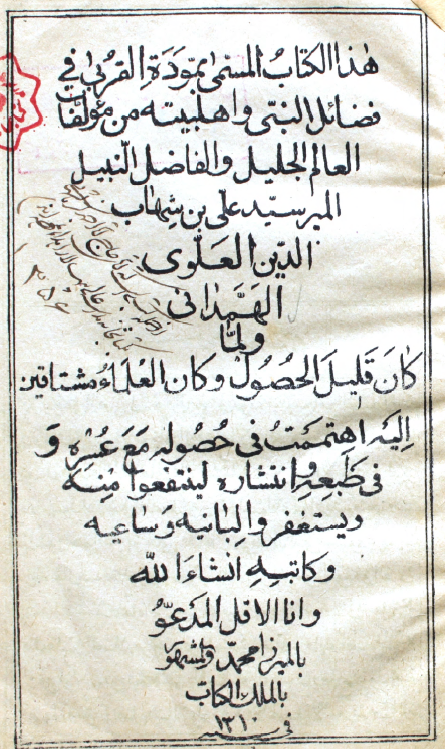 هذا الكتاب المسمى بمودة القربى في
فضائل النبي واهلبيته من مؤلفات
العالم الجليل والفاضل النبيل
المير سيد علي بن شهاب
الدين العلوي
الهمداني
ولما
كان قليل الحصول وكان العلماء مشتاقين
اليه اهتممت في حصوله مع عسره و
في طبعه وانتشاره لينتفعوا منه
ويستغفر والبانيه وساعيه
وكاتبه انشاء الله
وانا الاقل المدعو
بالميرزا محمد والمشهور
بالملك الكتاب
في سنه ١٣١٠